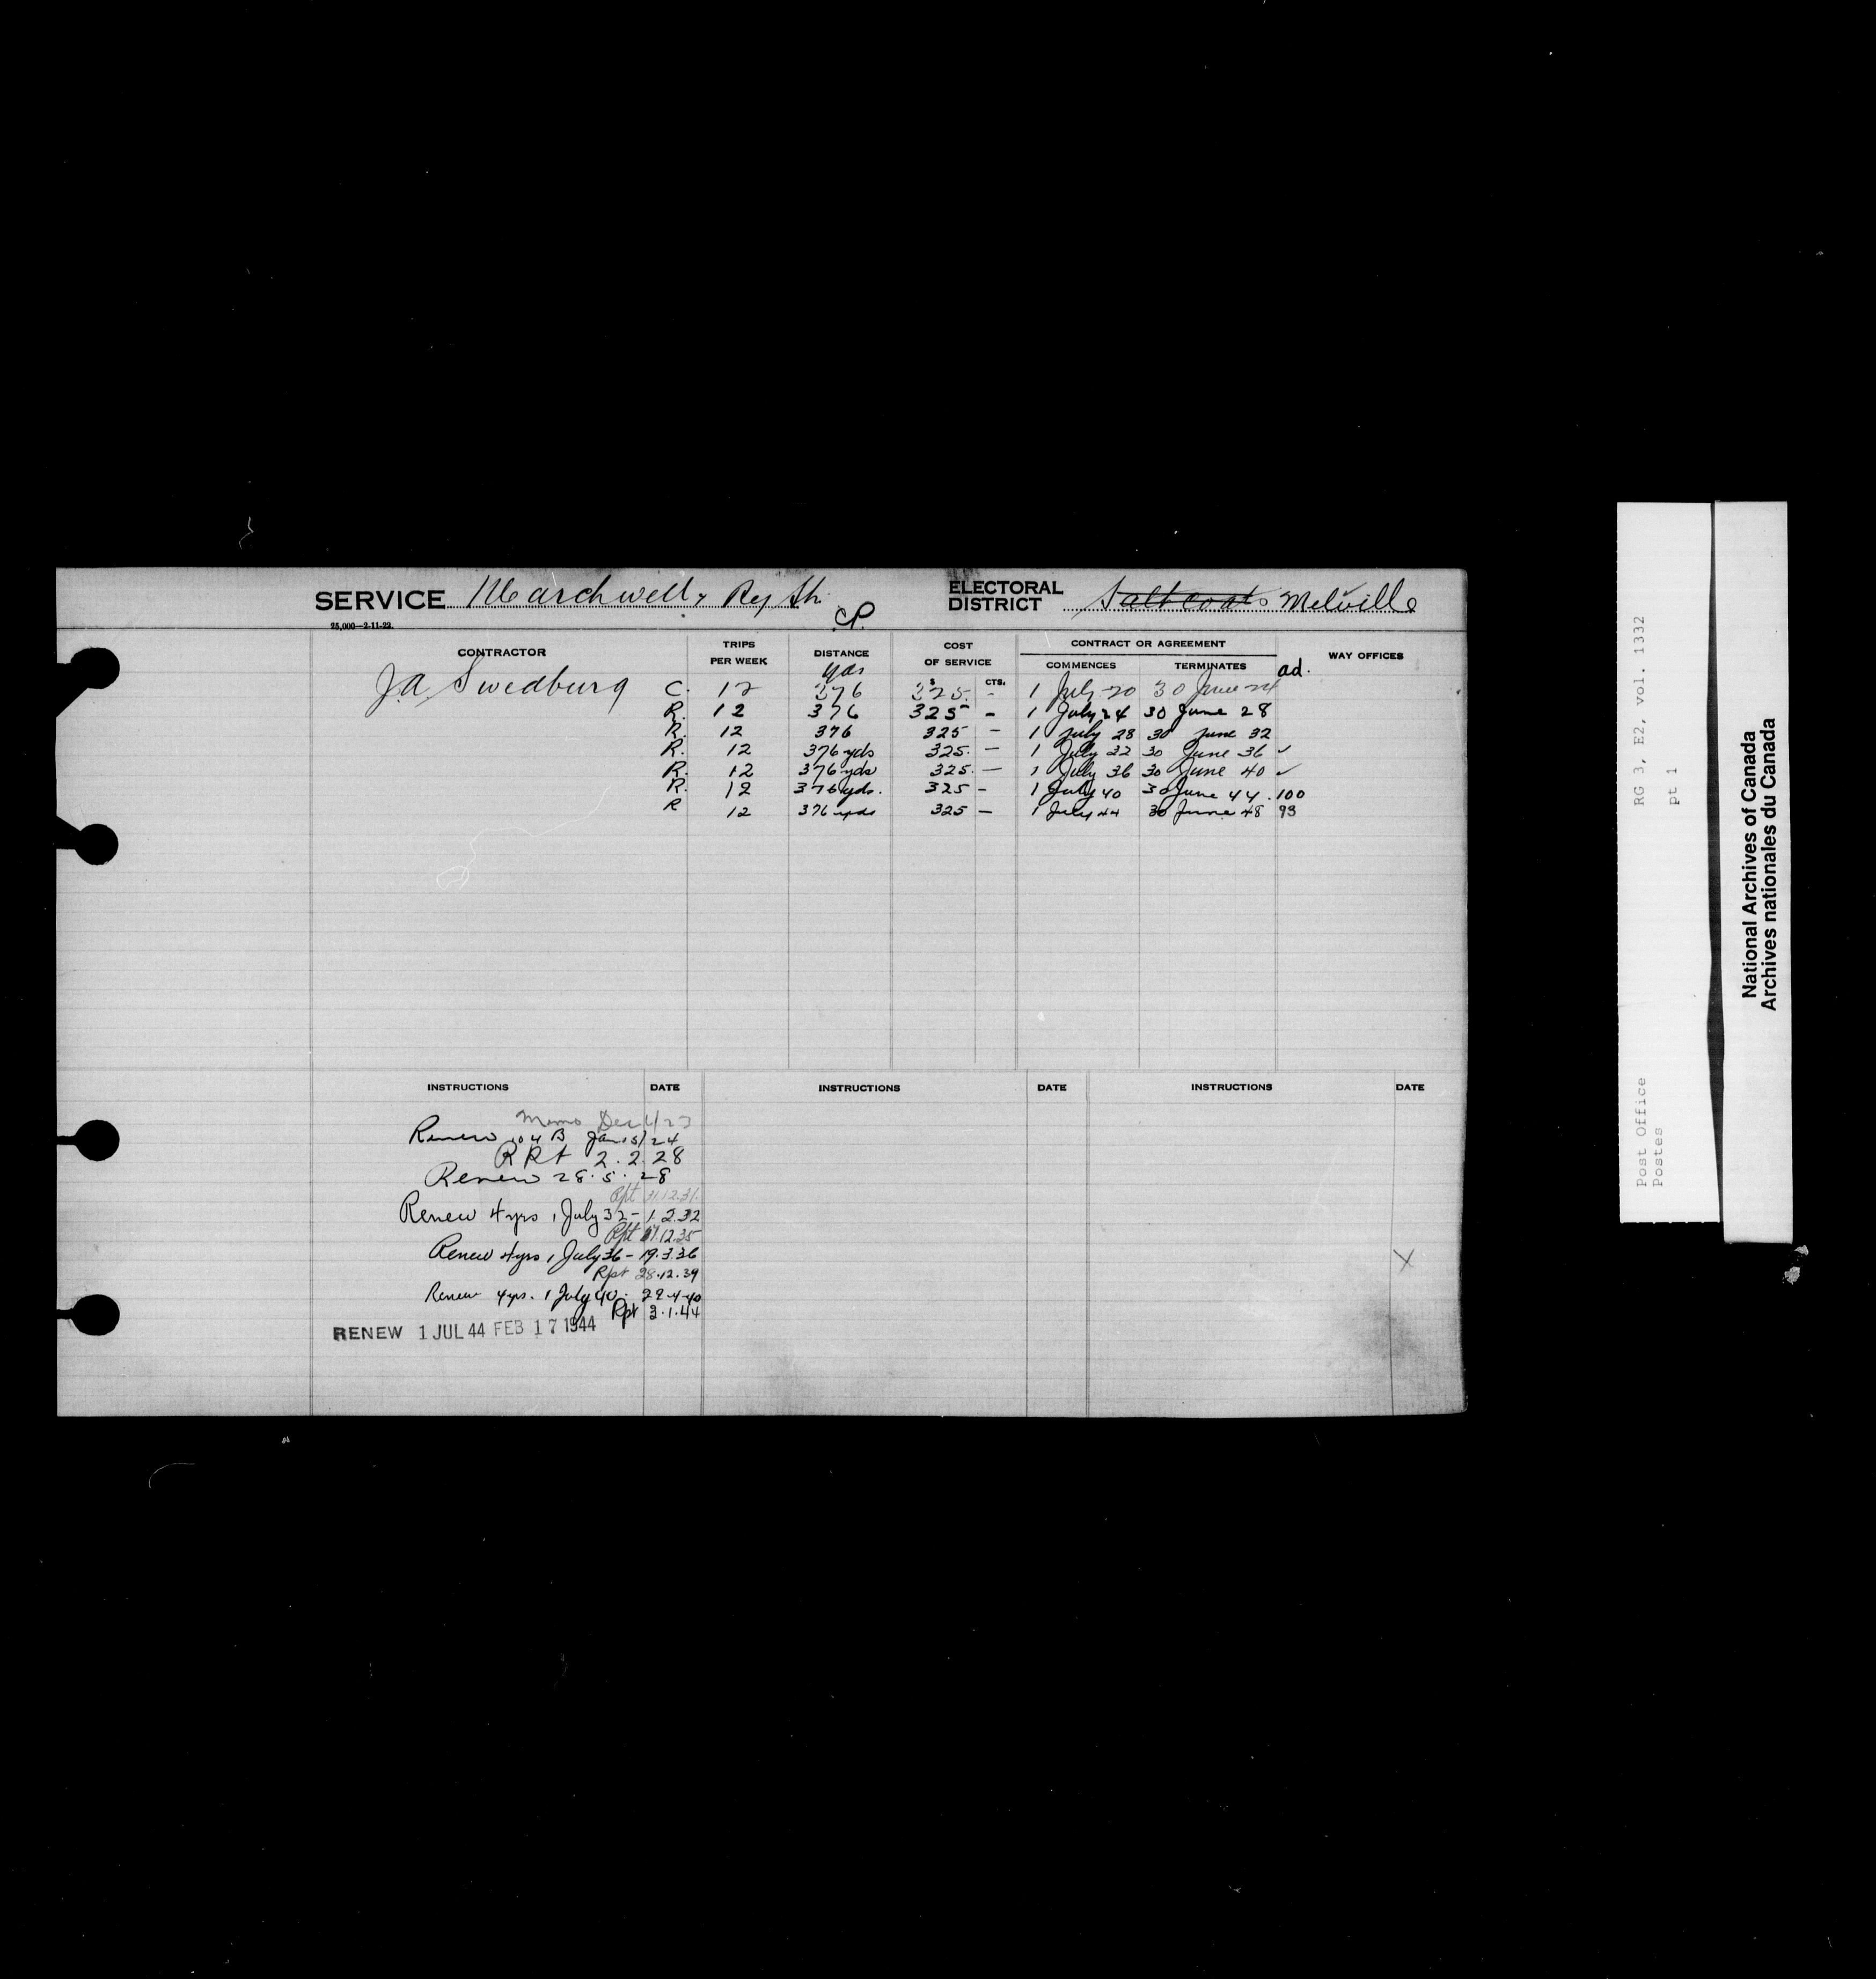 SERVICE Marchwell & Ry Stn. CP. ELECTORAL DISTRICT Saltcoats Melville
25,000—2-11-22.
CONTRACTOR TRIPS PER WEEK DISTANCE COST OF SERVICE CONTRACT OR AGREEMENT WAY OFFICES
COMMENCES TERMINATES ad.
yds $ CTS.
J.A. Swedburg C. 12 376 325. - 1 July 20 30 June 24
R. 12 376 325 - 1 July 24 30 June 28
R. 12 376 325 - 1 July 28 30 June 32
R. 12 376 yds 325. - 1 July 32 30 June 36 ✓
R. 12 376 yds 325. - 1 July 36 30 June 40 ✓
R. 12 376 yds. 325 - 1 July 40 30 June 44. 100
R 12 376 yds 325 - 1 July 44 30 June 48 93
INSTRUCTIONS DATE INSTRUCTIONS DATE INSTRUCTIONS DATE
Memo Dec 4/23
Renew 104 B Jan 15/24
R Rt 2.2.28
Renew 28.5.28
Rpt 31.12.31.
Renew 4 yrs 1 July 32 - 1.2.32
Rpt 31.12.35
Renew 4 yrs 1 July 36 - 19.3.36
X
Rpt 28.12.39
Renew 4 yrs. 1 July 40. 22-4-40
Rpt 3.1.44
RENEW 1 JUL 44 FEB 17 1944
RG 3, E2, vol. 1332
pt 1
Post Office
Postes
National Archives of Canada
Archives nationales du Canada